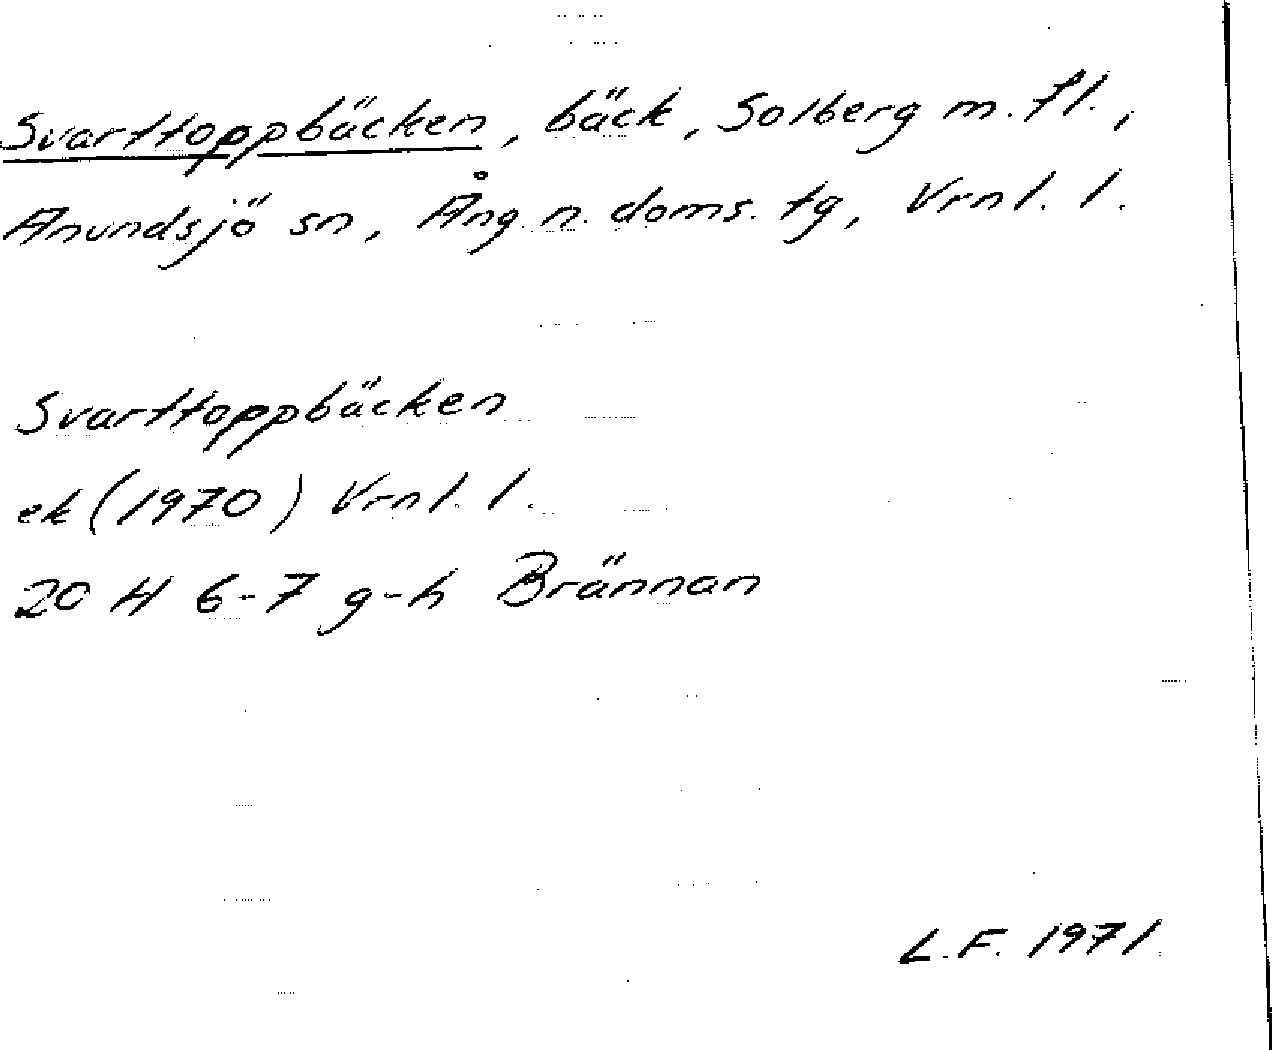 Svarttoppbäcken, bäck, Solberg m. fl.,
Anundsjö sn, Ång. n. doms. tg, Vrnl. l.
Svarttoppbäcken
ek (1970) Vrnl. l.
20 H 6-7 g-h Brännan
L.F. 1971